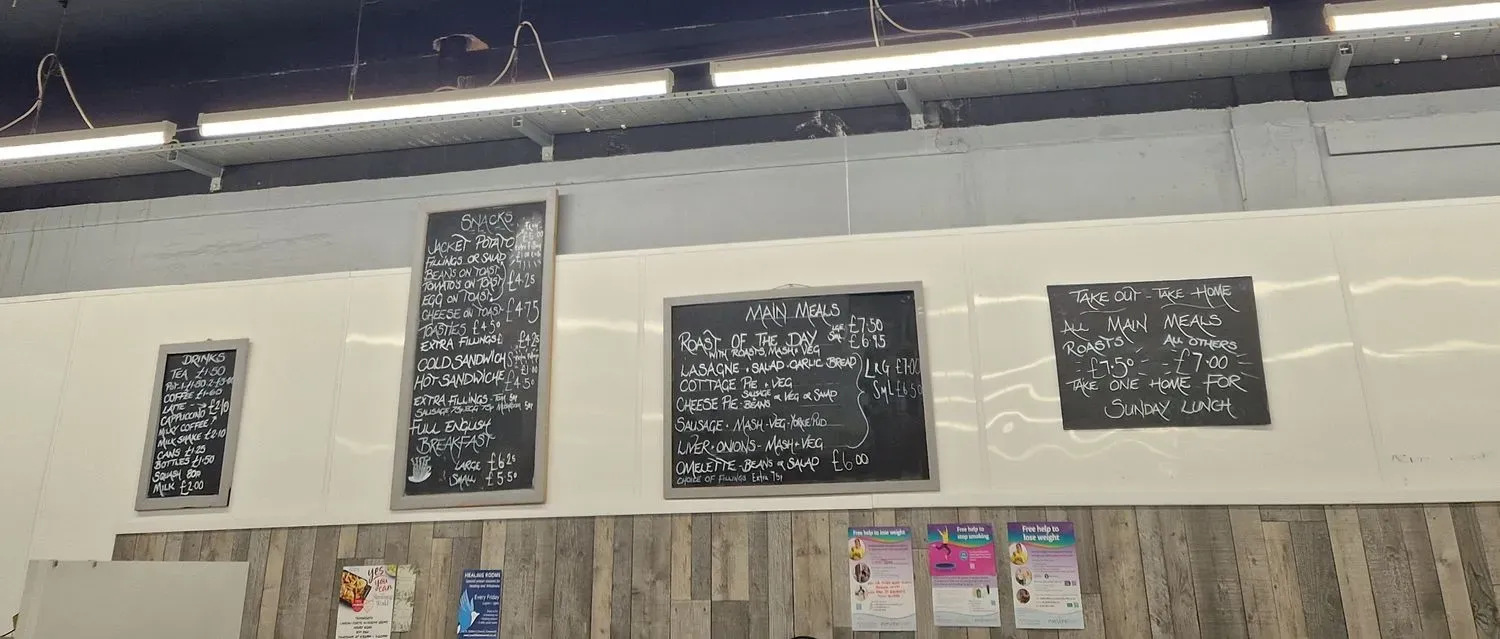 DRINKS
TEA £1.50
COFFEE £1.60
LATTE £2.10
CAPPUCCINO
MILKY COFFEE
MILK SHAKE £2.10
CANS £1.25
BOTTLES £1.50
SQUASH 80p
MILK £2.00
SNACKS
JACKET POTATO
FILLINGS OR SALAD
BEANS ON TOAST
TOMATO'S ON TOAST £4.25
EGG ON TOAST
CHEESE ON TOAST £4.75
TOASTIES £4.50
EXTRA FILLINGS
COLD SANDWICH £4.25
HOT SANDWICHE £4.50
EXTRA FILLINGS
FULL ENGLISH
BREAKFAST
LARGE £6.25
SMALL £5.50
MAIN MEALS
ROAST OF THE DAY LGE £7.50
SML £6.95
WITH ROASTS, MASH + VEG
LASAGNE + SALAD - GARLIC BREAD
LRG £7.00
COTTAGE PIE + VEG
SML £6.50
CHEESE PIE - SAUSAGE OR VEG OR SALAD
BEANS
SAUSAGE - MASH - VEG - YORKIE PUD
LIVER + ONIONS - MASH + VEG
OMELETTE - BEANS OR SALAD £6.00
CHOICE OF FILLINGS Extra 75p
TAKE OUT - TAKE HOME
ALL MAIN MEALS
ROASTS ALL OTHERS
£7.50 £7.00
TAKE ONE HOME FOR
SUNDAY LUNCH
yes
you
can
HEALING ROOMS
Every Friday
Free help to lose weight
Free help to
stop smoking
Free help to
lose weight